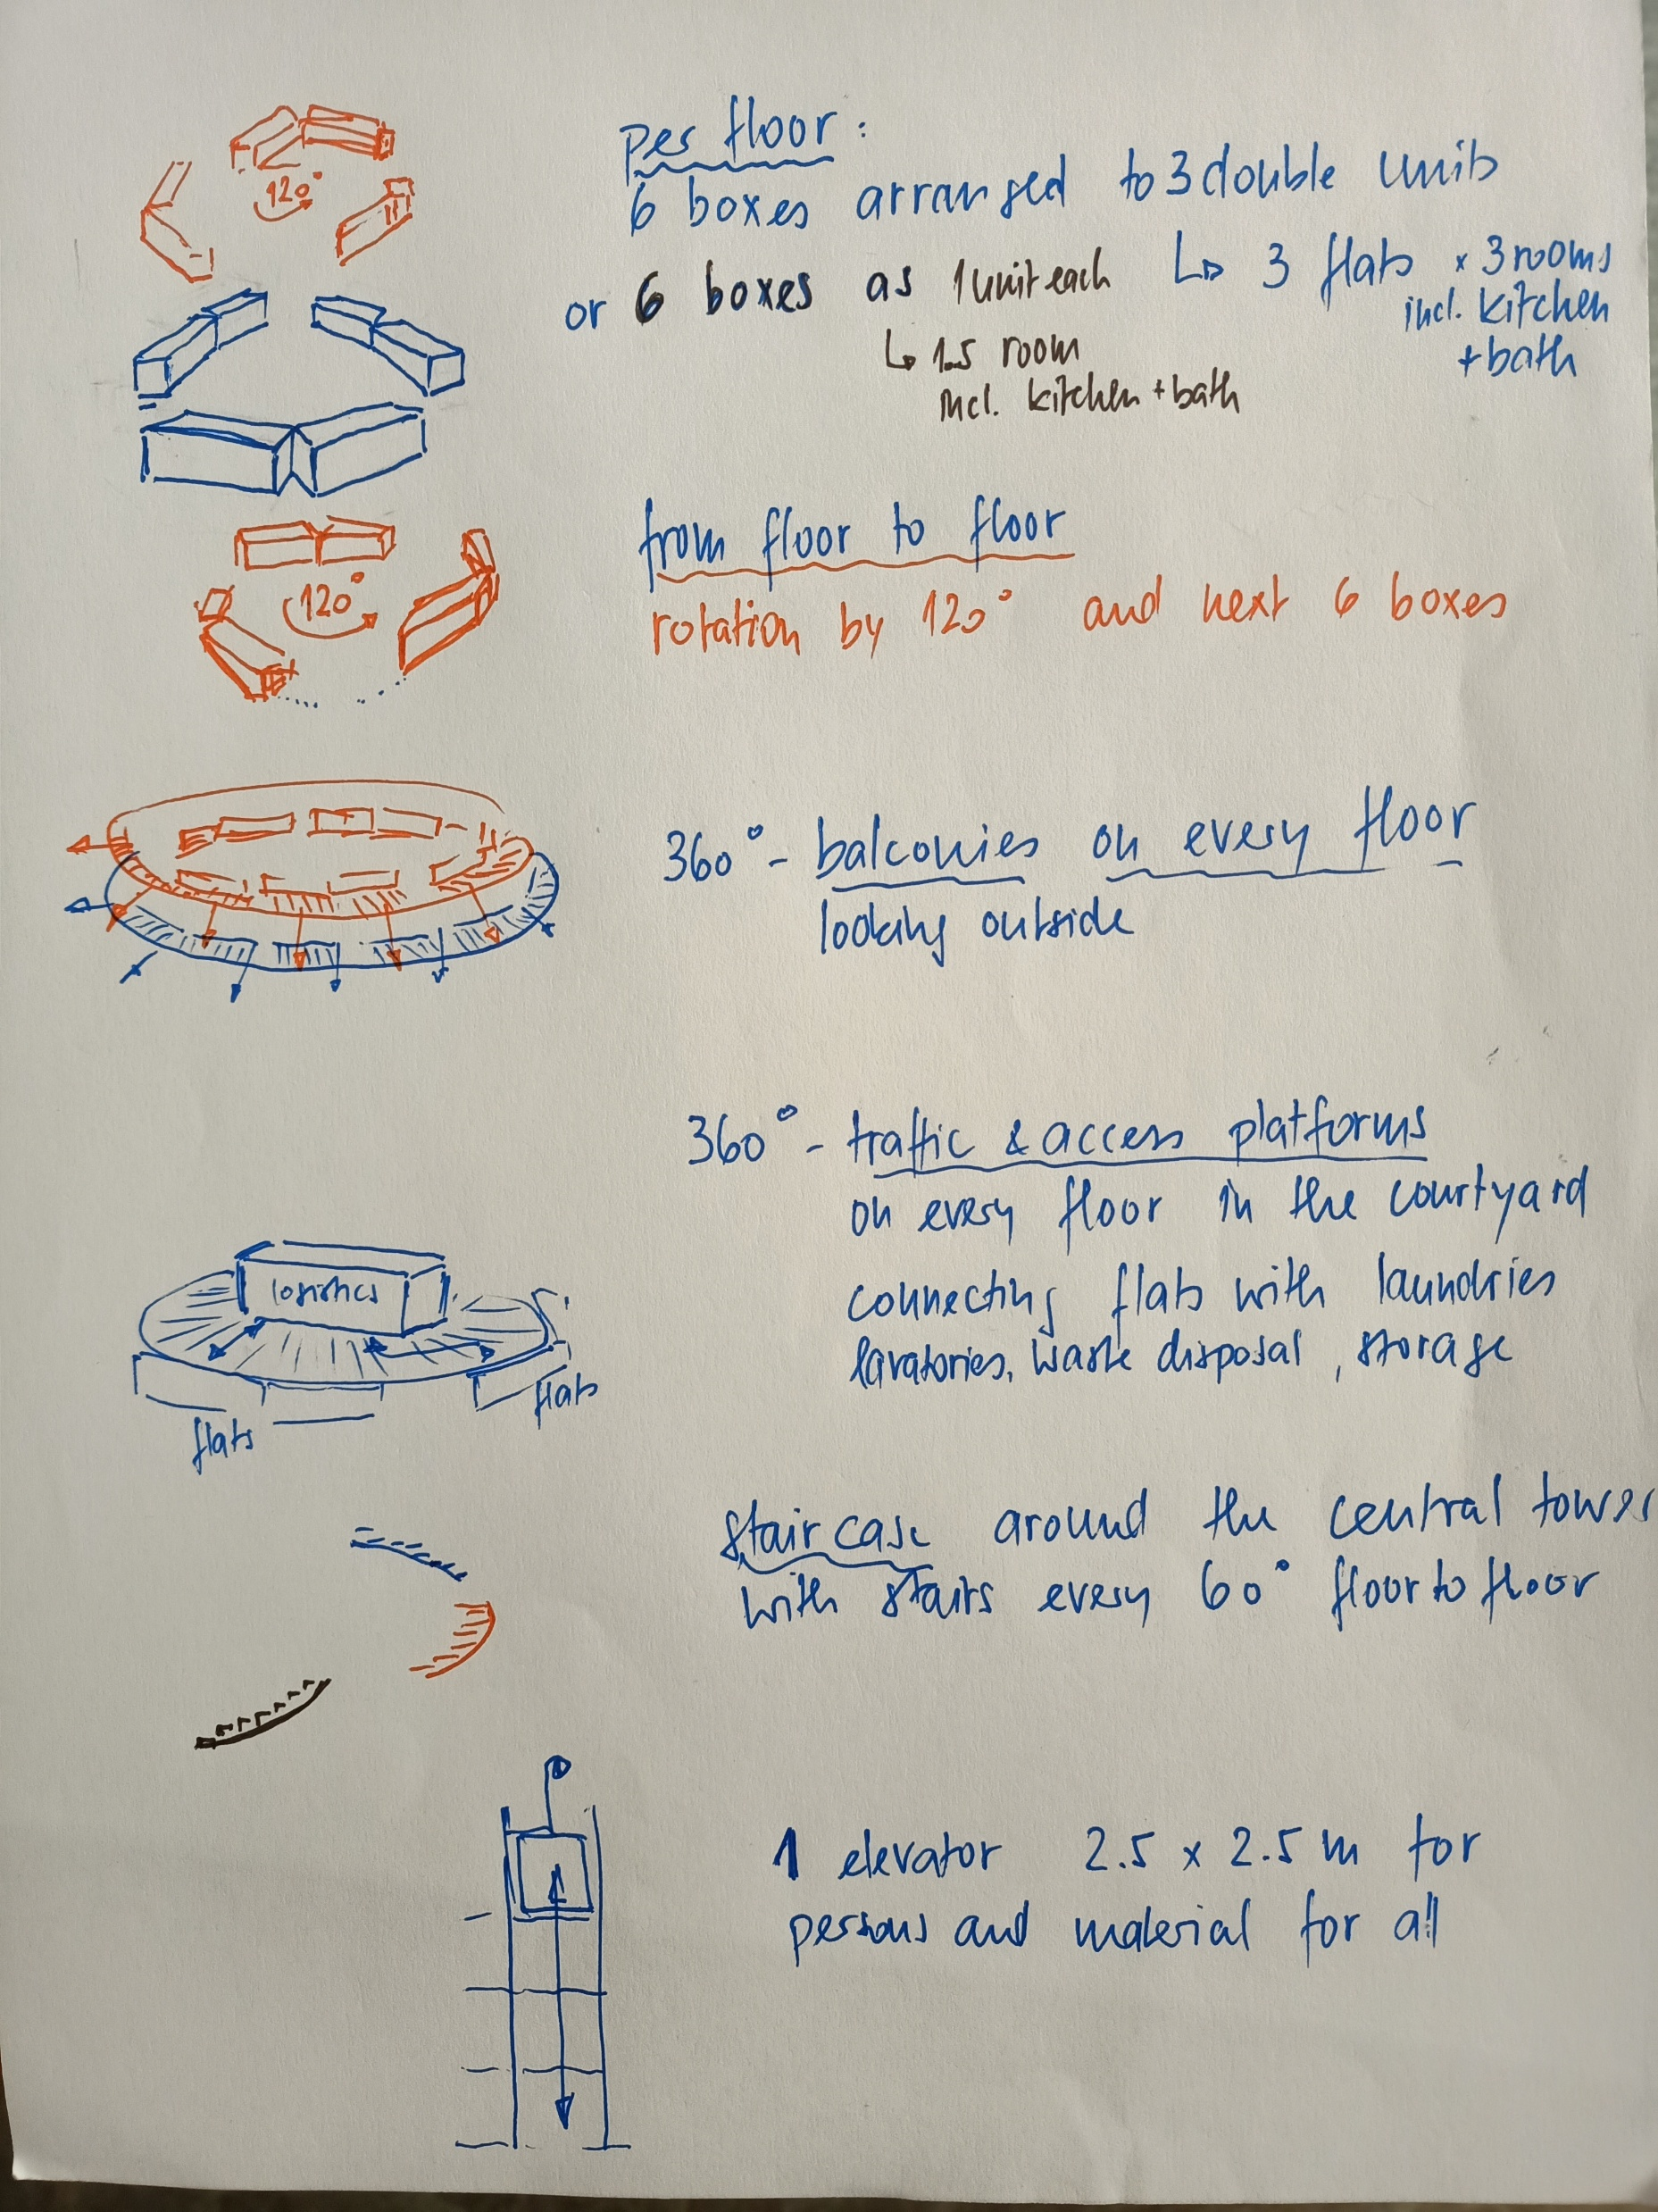 per floor:
6 boxes arranged to 3 double units
↳ 3 flats x 3 rooms
incl. kitchen
+ bath
or 6 boxes as 1 unit each
↳ 1.5 room
incl. kitchen + bath
120°
from floor to floor
rotation by 120° and next 6 boxes
120°
360° - balconies on every floor
looking outside
360° - traffic & access platforms
on every floor in the courtyard
connecting flats with laundries
lavatories, waste disposal, storage
logistics
flats
flats
staircase around the central tower
with stairs every 60° floor to floor
1 elevator 2.5 x 2.5 m for
persons and material for all